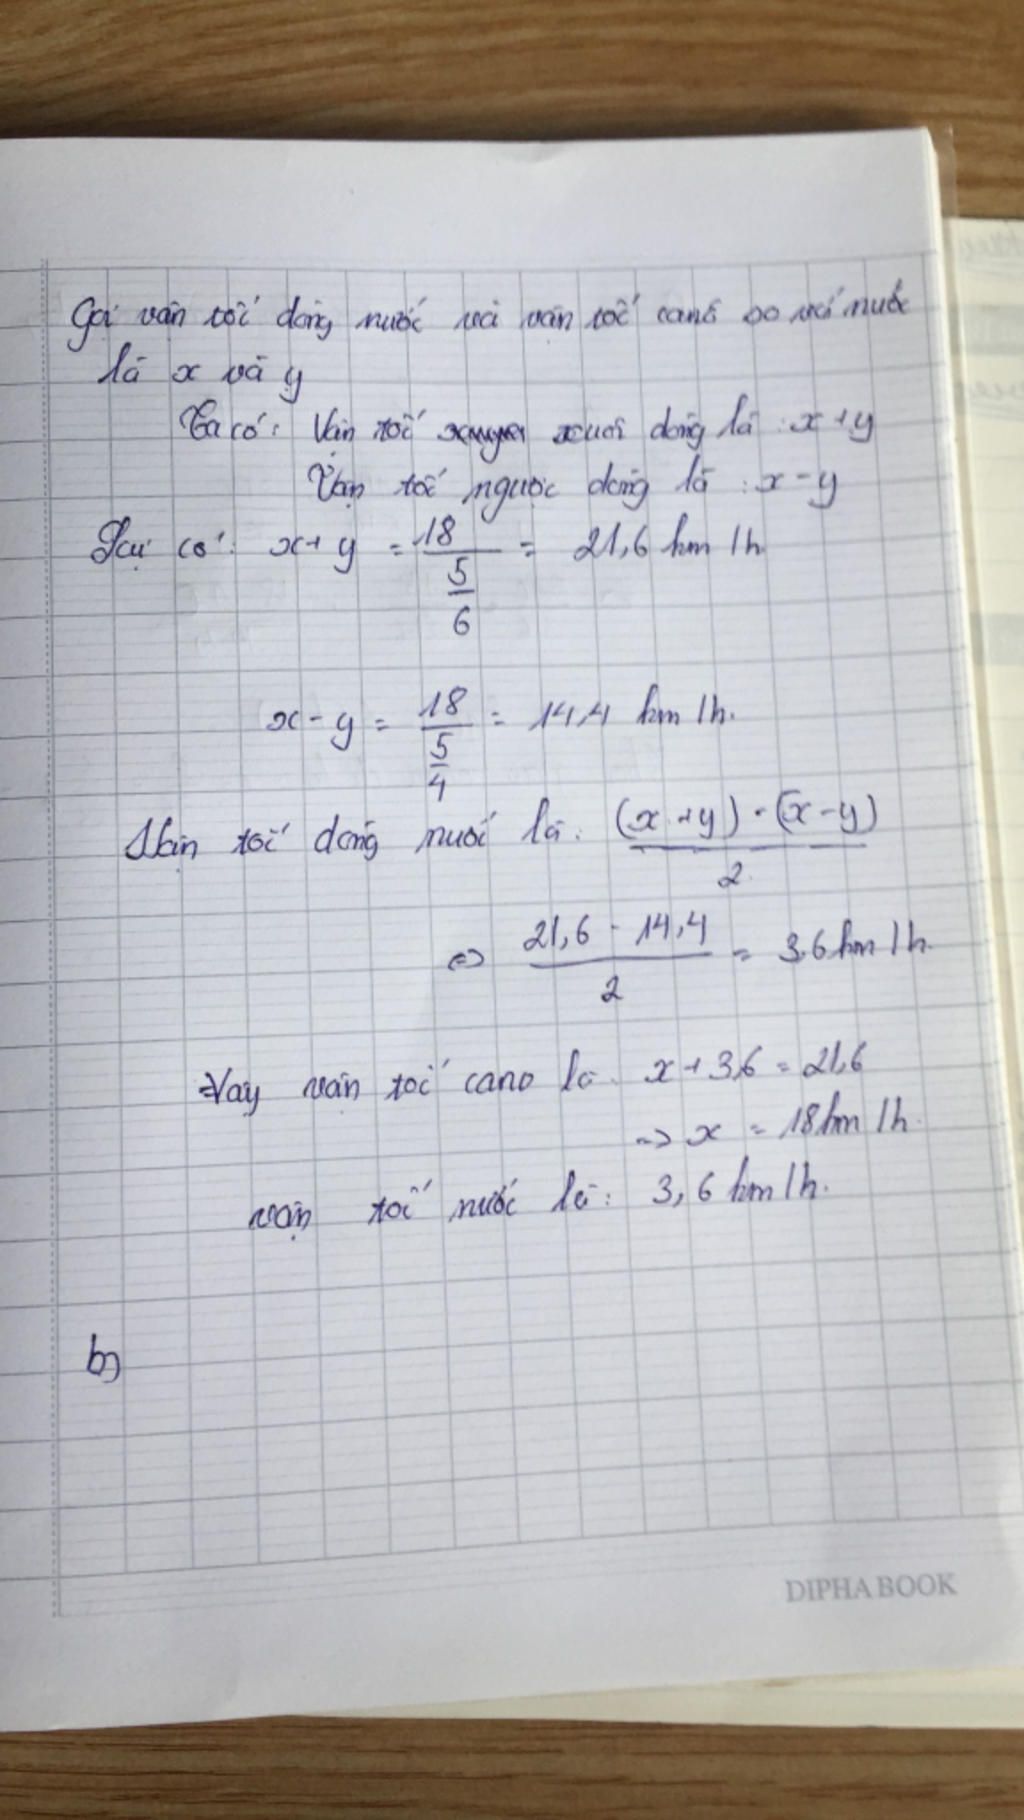 Gọi vân tốc dòng nước và vân tốc canô so với nước
là x và y
Ta có: Vận tốc xuôi dòng là : x + y
Vận tốc ngược dòng là : x - y
có: x + y = 18/(5/6) = 21,6 km/h
x - y = 18/(5/4) = 14,4 km/h.
Vận tốc dòng nước là: ((x + y) - (x - y))/2
⇔ (21,6 - 14,4)/2 = 3,6 km/h.
Vay vận tốc cano là x + 3,6 = 21,6
=> x = 18 km/h.
vận tốc nước là: 3,6 km/h.
b)
DIPHA BOOK